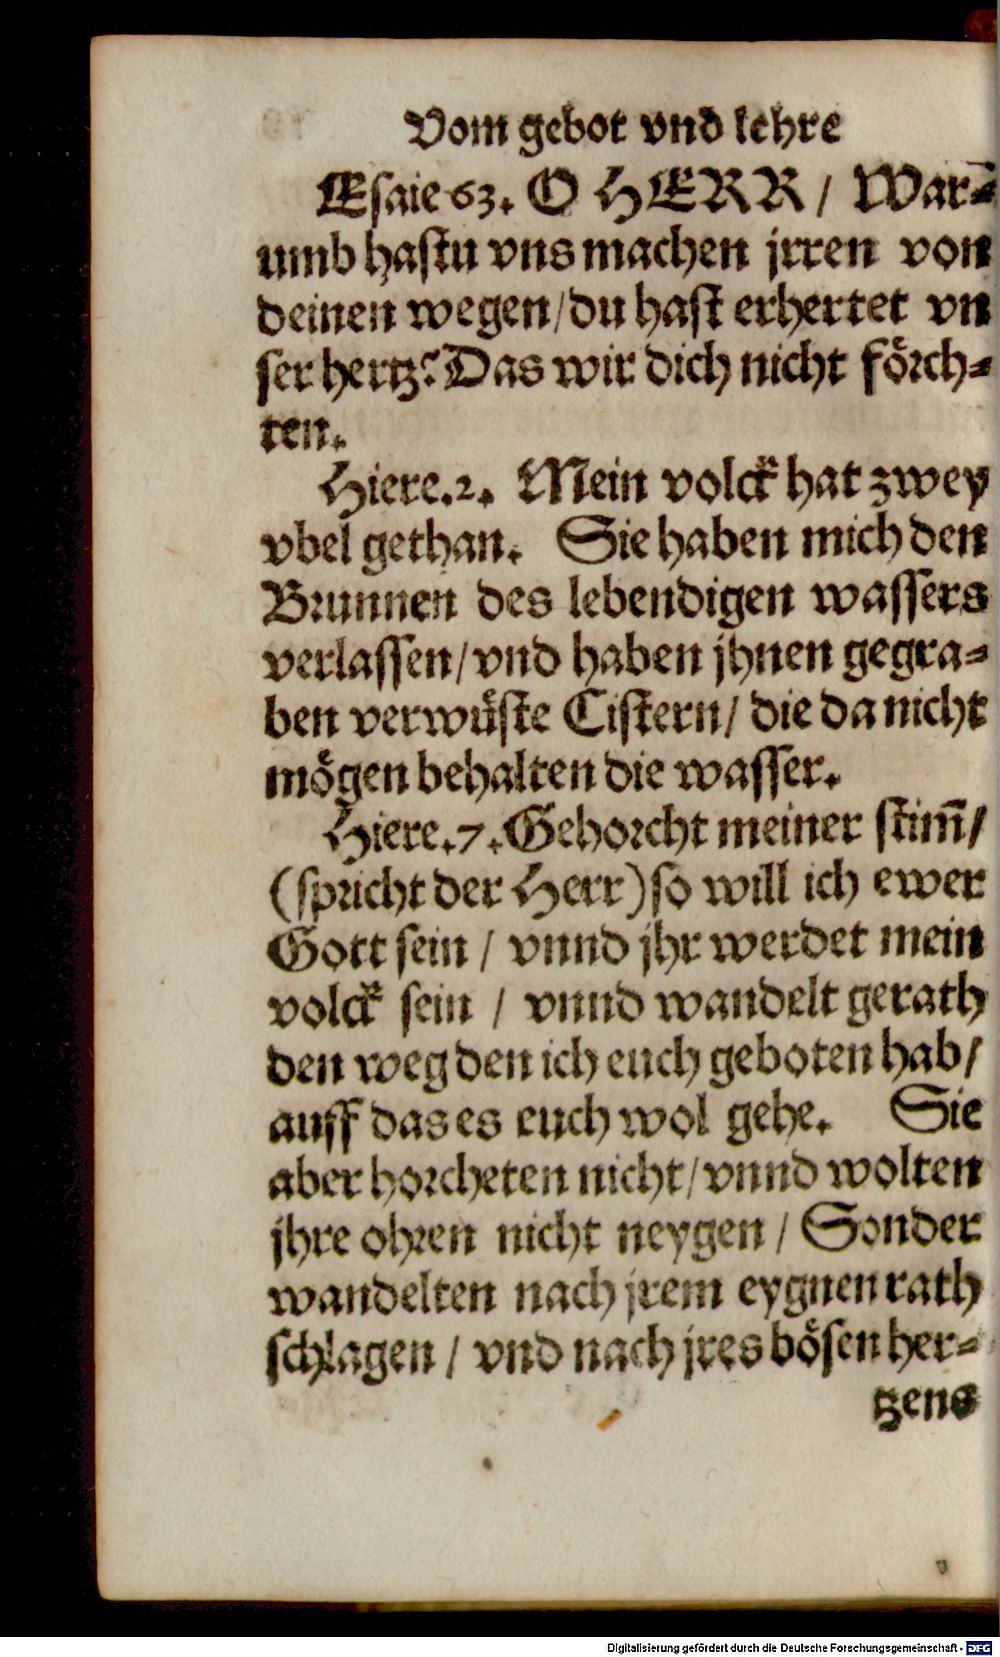 Vom gebot vnd lehre
Esaie 63. O HERR / War⸗
umb hastu vns machen jrren von
deinen wegen/du hast erhertet vn
ser hertz? Das wir dich nicht foͤrch⸗
ten.
Hiere.2. Mein volck hat zwey
vbel gethan. Sie haben mich den
Brunnen des lebendigen wassers
verlassen/vnd haben jhnen gegra⸗
ben verwuͤste Cistern/ die da nicht
moͤgen behalten die wasser.
Hiere.7. Gehorcht meiner stim̃/
(spricht der Herr) so will ich ewer
Gott sein / vnnd jhr werdet mein
volck sein / vnnd wandelt gerath
den weg den ich euch geboten hab/
auff das es euch wol gehe. Sie
aber horcheten nicht/vnnd wolten
jhre ohren nicht neygen / Sonder
wandelten nach jrem eygnen rath
schlagen / vnd nach jres boͤsen her⸗
tzens
Digitalisierung gefördert durch die Deutsche Forschungsgemeinschaft - DFG